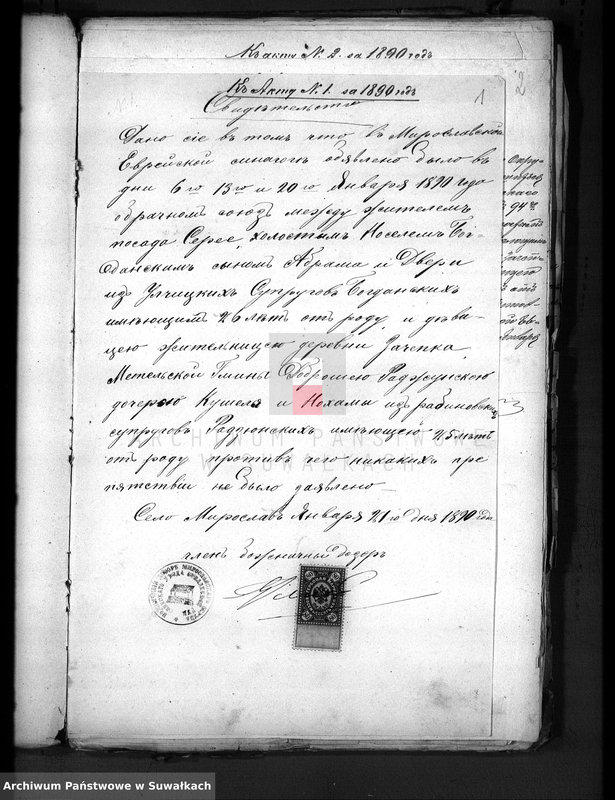 Къ акту N. 2. за 1890 годъ
Къ Акту N. 1. за 1890 годъ
1
2
Свидѣтельство
Дано сіе въ томъ что въ Мирославской
Еврейской синагогѣ объявлено было въ
дни 6го 13го и 20го Января 1890 года
о брачномъ союзѣ между жителемъ
посада Серее, холостымъ Носелемъ Бог-
данскимъ сыномъ Абрама и Двери
изъ Улчицкихъ Супруговъ Богданскихъ
имѣющимъ 26 лѣтъ отъ роду, и дѣви-
цею жительницею деревни
Метельской Гмины
дочерью Кушеля и Нохамы изъ рабиновскихъ
супруговъ имѣющею 25 лѣтъ
отъ роду противъ чего никакихъ пре
пятствіи не было заявлено
Село Мирославъ Января 21го дня 1890 года
членъ божничный дозоръ
ARCHIWUM PAŃSTWOWE
W SUWAŁKACH
Archiwum Państwowe w Suwałkach